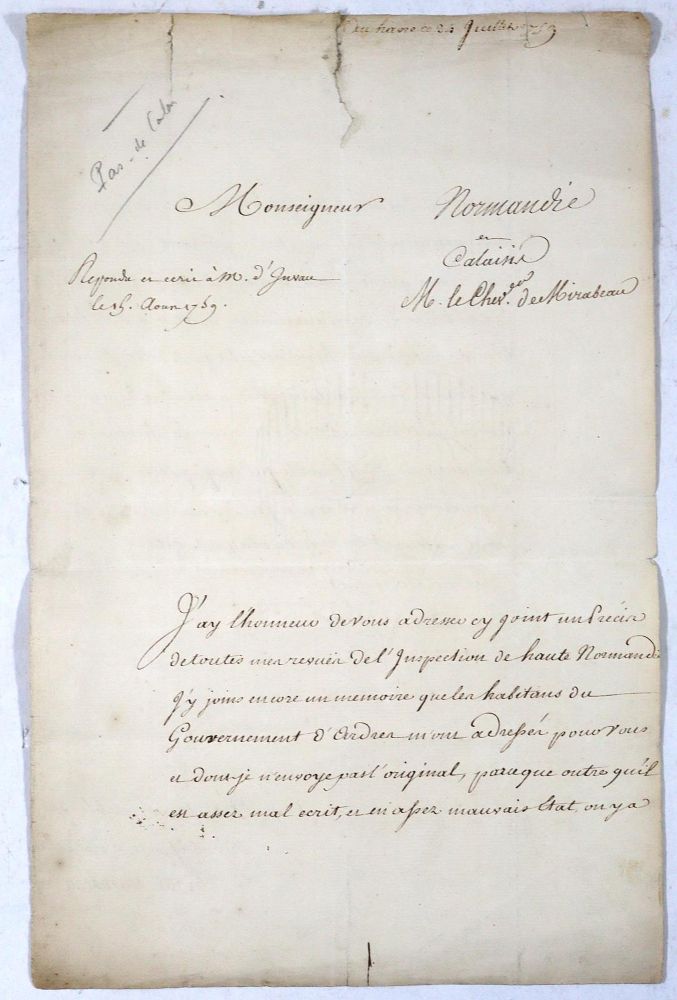 Au havre ce 24 Juillet 1759
Pas-de Calais
Monseigneur
Normandie
en
Calaisis
M. le Chev.er de Mirabeau
Repondu et ecrit à M. d'Invau
le 15. Aoust 1759.
J'ay l'honneur de vous adresser cy joint un Précis
de toutes mes revües de l'Inspection de haute Normandie
J'y joins encore un memoire que les habitans du
Gouvernement d'Ardres m'ont adressés pour vous
et dont je n'envoye pas l'original, parce que outre qu'il
est assez mal ecrit, et en assez mauvais Etat, on y a